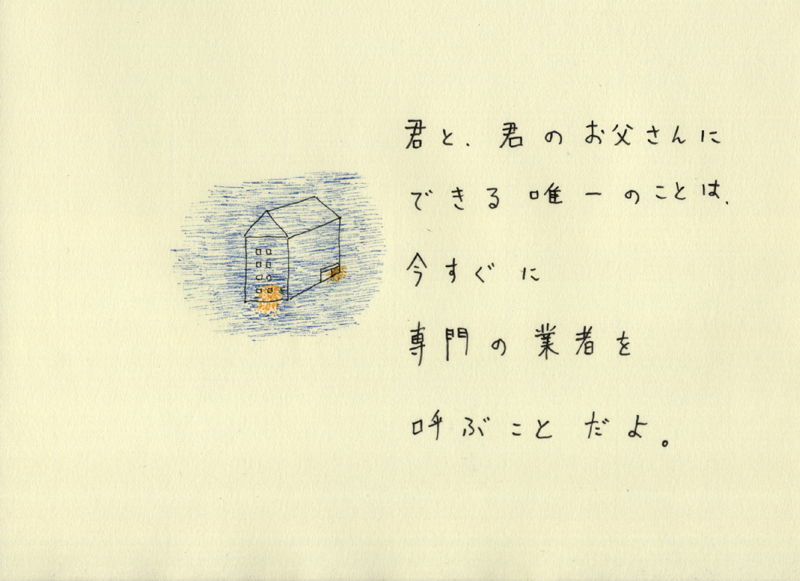 君と、君のお父さんに
できる唯一のことは、
今すぐに
専門の業者を
呼ぶことだよ。